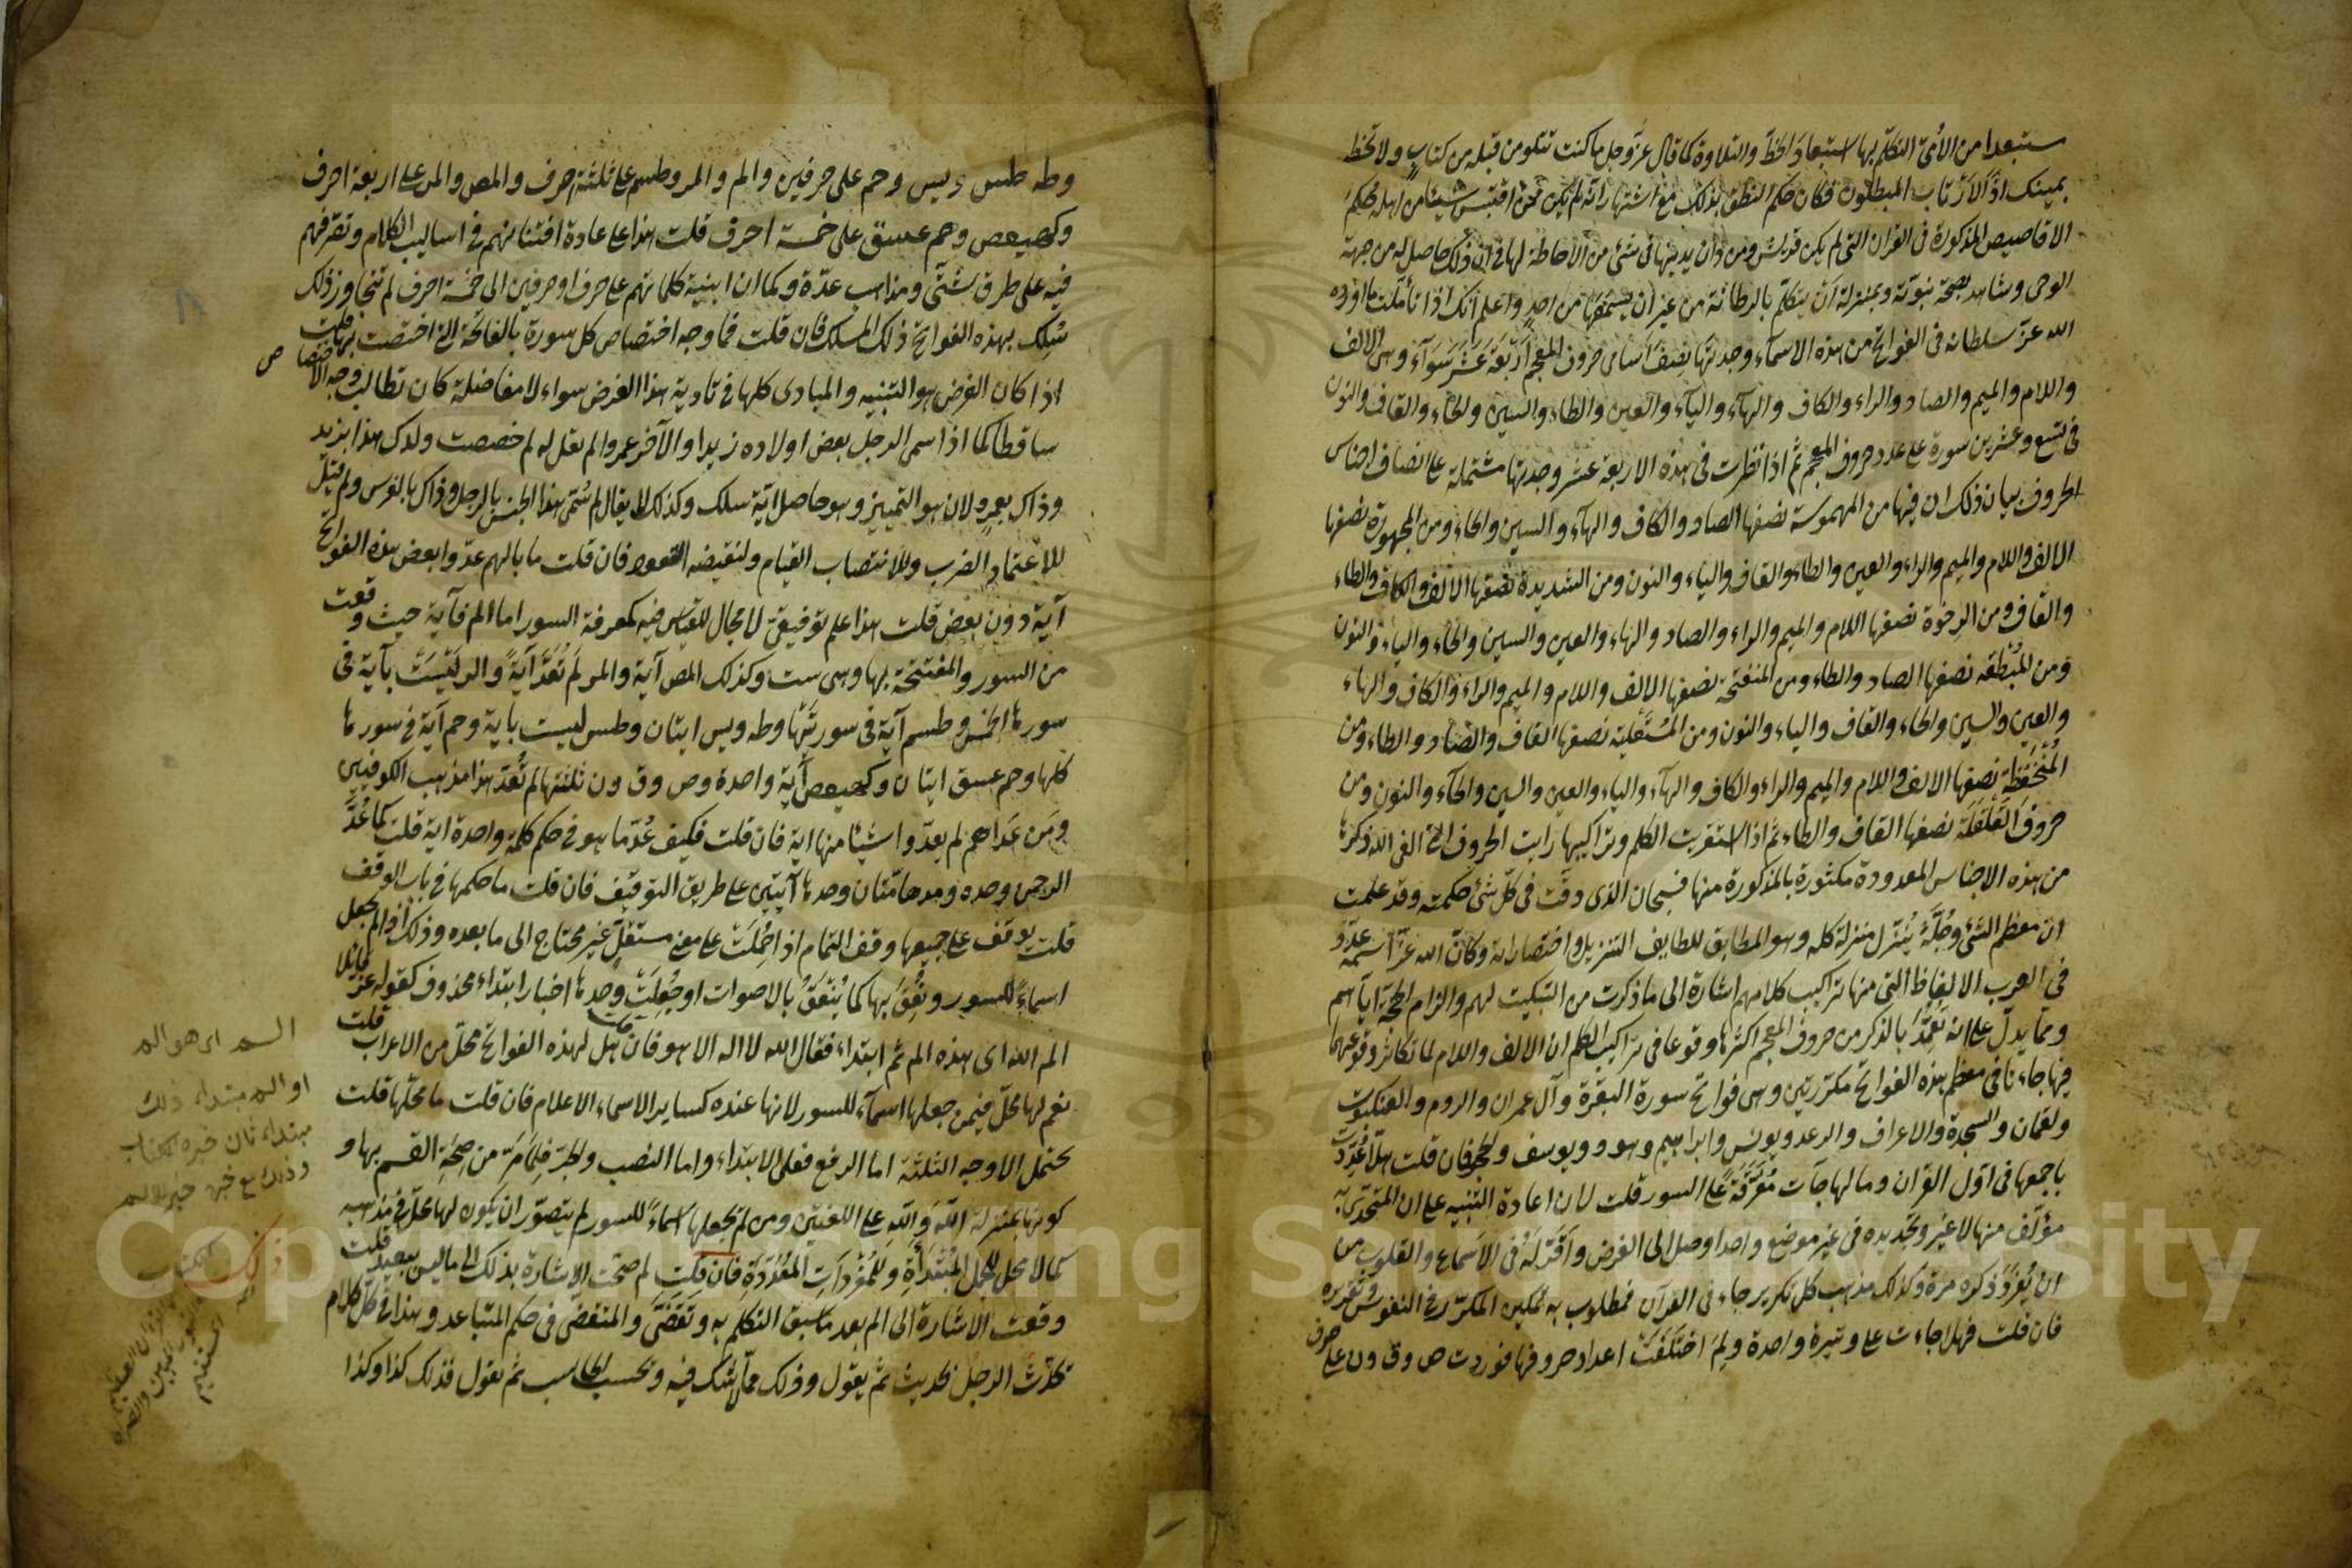 ستبعدا من الأمىّ التكلم بها استبعاد الخطّ والتلاوة كما قال عزّ وجل ما كنت تتلو من قبله من كتاب ولا تخطه
بيمينك اذًا لارتاب المبطلون فكان حكم النطق بذلك مع اشتهار انه لم يكن ممن اقتبس شيئا من اهله حكم
الاقاصيص المذكورة فى القران التى لم يكن قريش ومن دان بدينها فى شئ من الاحاطة لها فى ان ذلك حاصل له من جهة
الوحى وشاهد بصحة نبوته وبمنزلة ان يتكلم بالرطانة من غير ان يسمعها من احد واعلم انك اذا تأملت ما اورده
الله عزّ سلطانه فى الفواتح من هذه الاسماء وجدتها نصف اسامى حروف المعجم اربعة عشر سواء وهى الالف
واللام والميم والصاد والراء والكاف والهاء والياء والعين والطاء والسين والحاء والقاف والنون
فى تسع وعشرين سورة على عدد حروف المعجم ثم اذا نظرت فى هذه الاربعة عشر وجدتها مشتملة على انصاف اجناس
الحروف بيان ذلك ان فيها من المهموسة نصفها الصاد والكاف والهاء والسين والحاء ومن المجهورة نصفها
الالف واللام والميم والراء والعين والطاء والقاف والياء والنون ومن الشديدة نصفها الالف والكاف والطاء
والقاف ومن الرخوة نصفها اللام والميم والراء والصاد والهاء والعين والسين والحاء والياء والنون
ومن المطبقه نصفها الصاد والطاء ومن المنفتحة نصفها الالف واللام والميم والراء والكاف والهاء
والعين والسين والحاء والقاف والياء والنون ومن المستعلية نصفها القاف والصاد والطاء ومن
المنخفظة نصفها الالف واللام والميم والراء والكاف والهاء والياء والعين والسين والحاء والنون ومن
حروف القلقلة نصفها القاف والطاء ثم اذا استقريت الكلم وتراكيبها رايت الحروف التى الغى الله ذكرها
من هذه الاجناس المعدودة مكثورة بالمذكورة منها فسبحان الذى دقّت فى كل شئ حكمته وقد علمت
ان معظم الشئ وجلّه ينزل منزلة كله وهو المطابق للطايف التنزيل واختصاراته وكانّ الله عزّ اسمه عدّد
فى العرب الالفاظ التى منها تراكيب كلامهم اشارة الى ما ذكرت من التبكيت لهم والزام الحجة اياهم
ومما يدلّ على انه تعمّد بالذكر من حروف المعجم اكثرها وقوعا فى تراكيب الكلم ان الالف واللام لما تكاثر وقوعهما
فيها جاءتا فى معظم هذه الفواتح مكررتين وهى فواتح سورة البقرة وآل عمران والروم والعنكبوت
ولقمان والسجدة والاعراف والرعد ويونس وابراهيم وهود ويوسف والحجر فان قلت هلا عدّدت
باجمعها فى اول القران وما لها جآت مفرّقة على السور قلت لان اعادة التنبيه على ان المتحدّى به
مؤلّف منها لا غير وتجديده فى غير موضع واحد اوصل الى الغرض واقرّ له فى الاسماع والقلوب من
ان يفرد ذكره مرة وكذلك مذهب كل تكرير جاء فى القرآن فمطلوب به تمكين المكرّر فى النفوس وتقريره
فان قلت فهلا جاءت على وتيرة واحدة ولم اختلفت اعداد حروفها فوردت ص وق ون على حرف
وطه طس ويس وحم على حرفين والم والر وطسم على ثلثة احرف والمص والمر على اربعة احرف
وكهيعص وحم عسق على خمسة احرف قلت هذا على عادة افتنانهم فى اساليب الكلام وتصرفهم
فيه على طرق شتّى ومذاهب عدّة وكما ان ابنية كلماتهم على حرف او حرفين الى خمسة احرف لم تتجاوز ذلك
سُلِك بهذه الفواتح ذلك المسلك فان قلت فما وجه اختصاص كل سورة بالفاتحة التى اختصت بها قلت
اذا كان الغرض هو التنبيه والمبادى كلها فى تادية هذا الغرض سواء لا مفاضلة كان تطالب وجه الاختصاص
ساقطا كما اذا سمى الرجل بعض اولاده زيدا والآخر عمروا لم يقل له لم خصصت ولدك هذا بزيد
وذاك بعمرو لان هو التمييز وهو حاصل اية سلك وكذلك لا يقال لم سُمّى هذا الجنس بالرجل وذاك بالفرس ولم قيل
للاعتماد الضرب وللانتصاب القيام ولنقيضه القعود فان قلت ما بالهم عدّوا بعض هذه الفواتح
آية دون بعض قلت هذا علم توقيفى لا مجال للقياس فيه كمعرفة السور اما الم فآية حيث وقعت
من السور والمفتتحة بها وهى ست وكذلك المص آية والمر لم تُعَدّ آيةً والر ليست بآية فى
سورها الخمس وطسم آية فى سورتيها وطه ويس ايتان وطس ليست باية وحم آية فى سورها
كلها وحم عسق ايتان وكهيعص آية واحدة وص وق ون ثلثتها لم تُعَدّ هذا مذهب الكوفيين
ومَن عداهم لم يعدّوا شيئا منها اية فان قلت فكيف عُدّ ما هو فى حكم كلمة واحدة اية قلت كما عُدَّ
الرحمن وحده ومدهامّتان وحدها آيتين على طريق التوقيف فان قلت ما حكمها فى باب الوقف
قلت يوقف على جميعها وقف التمام اذا حُمِلَت على معنى مستقلٍّ غير محتاج الى ما بعده وذلك اذا لم تجعل
اسماءً للسور ونُعِقَ بها كما يُنعَقُ بالاصوات او جُعِلَت وحدها اخبار ابتداء محذوف كقوله عزّ قائلا
الم الله اى هذه الم ثم ابتداء فقال الله لا اله الا هو فان قلت هل لهذه الفواتح محلّ من الاعراب قلت
نعم لها محلّ فيمن جعلها اسماء للسور لانها عنده كساير الاسماء الاعلام فان قلت ما محلّها قلت
يحتمل الاوجه الثلثة اما الرفع فعلى الابتداء واما النصب والجر فلما مرّ من صحّة القسم بها و
كونها بمنزلة اللّهَ واللّهِ على اللغتين ومن لم يجعلها اسماءً للسور لم يتصوّر ان يكون لها محلّ فى مذهبه
كما لا محل للجمل المبتدأة وللمفردات المعدّدة فان قلت لم صحّت الاشارة بذلك الى ما ليس ببعيد قلت
وقعت الاشارة الى الم بعد ما سبق التكلم به وتقضّى والمتقضى فى حكم المتباعد وهذا فى كل كلام
تحدّث الرجل بحديث ثم يقول وذلك مما لا شك فيه وتحسب الحاسب ثم تقول فذلك كذا وكذا
الم اى هو الم
او الم مبتداء ذلك
مبتداء ثان خبره الكتاب
وذلك مع خبره خبر لالم
ذلك الكتب
Copyright King Saud University
1957